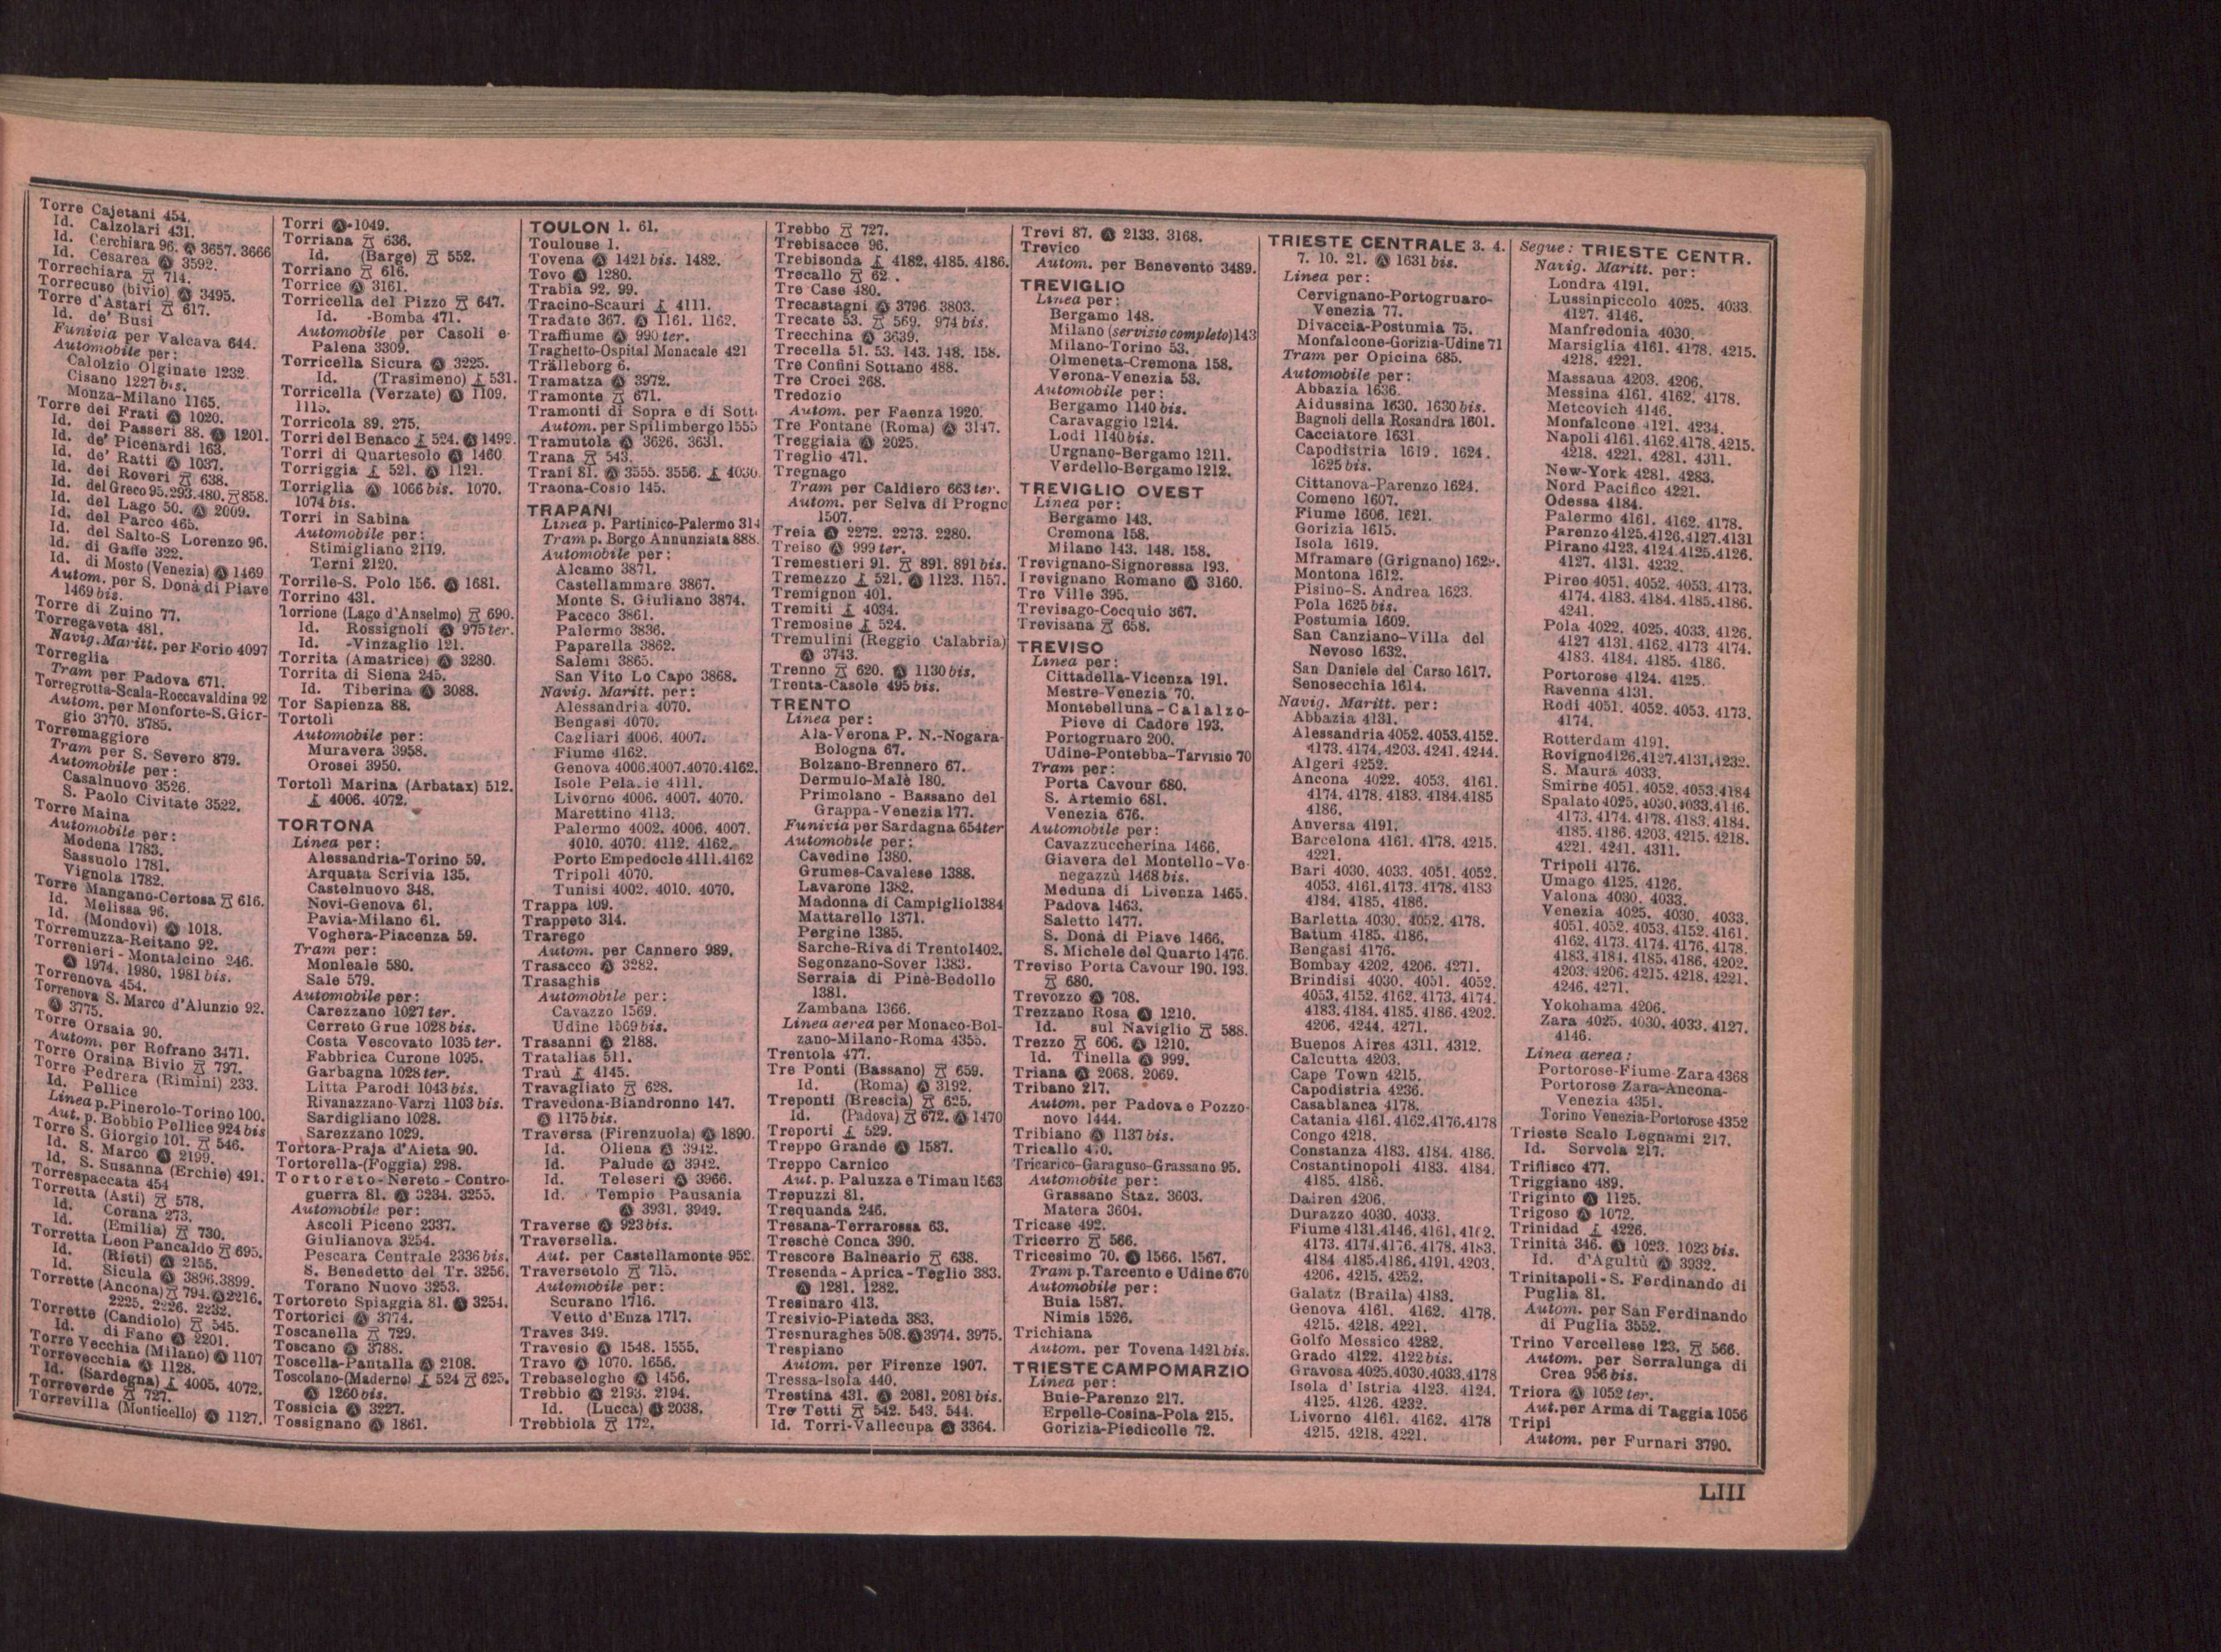 Torre Cajetani 454.
Id. Calzolari 431.
Id. Cerchiara 96. Ⓐ 3657. 3666
Id. Cesarea Ⓐ 3592.
Torrechiara 714.
Torrecuso (bivio) Ⓐ 3495.
Torre d'Astari 617.
Id. de' Busi
Funivia per Valcava 644.
Automobile per:
Calolzio Olginate 1232.
Cisano 1227 bis.
Monza-Milano 1165.
Torre dei Frati Ⓐ 1020.
Id. dei Passeri 88. Ⓐ 1201.
Id. de' Picenardi 163.
Id. de' Ratti Ⓐ 1037.
Id. dei Roveri 638.
Id. del Greco 95. 293. 480. 858.
Id. del Lago 50. Ⓐ 2009.
Id. del Parco 465.
Id. del Salto-S Lorenzo 96.
Id. di Gaffe 322.
Id. di Mosto (Venezia) Ⓐ 1469
Autom. per S. Donà di Piave
1469 bis.
Torre di Zuino 77.
Torregaveta 481.
Navig. Maritt. per Forio 4097
Torreglia
Tram per Padova 671.
Torregrotta-Scala-Roccavaldina 92
Autom. per Monforte-S. Gior-
gio 3770. 3785.
Torremaggiore
Tram per S. Severo 879.
Automobile per:
Casalnuovo 3526.
S. Paolo Civitate 3522.
Torre Maina
Automobile per:
Modena 1783.
Sassuolo 1781.
Vignola 1782.
Torre Mangano-Certosa 616.
Id. Melissa 96.
Id. (Mondovì) Ⓐ 1018.
Torremuzza-Reitano 92.
Torrenieri - Montalcino 246.
Ⓐ 1974. 1980. 1981 bis.
Torrenova 454.
Torrenova S. Marco d'Alunzio 92.
Ⓐ 3775.
Torre Orsaia 90.
Autom. per Rofrano 3471.
Torre Orsina Bivio 797.
Torre Pedrera (Rimini) 233.
Id. Pellice
Linea p. Pinerolo-Torino 100.
Aut. p. Bobbio Pellice 924 bis
Torre S. Giorgio 101. 546.
Id. S. Marco Ⓐ 2199.
Id. S. Susanna (Erchie) 491.
Torrespaccata 454
Torretta (Asti) 578.
Id. Corana 273.
Id. (Emilia) 730.
Torretta Leon Pancaldo 695.
Id. (Rieti) Ⓐ 2155.
Id. Sicula Ⓐ 3896. 3899.
Torrette (Ancona) 794. Ⓐ 2216.
2225. 2226. 2232.
Torrette (Candiolo) 545.
Id. di Fano Ⓐ 2201.
Torre Vecchia (Milano) Ⓐ 1107
Torrevecchia Ⓐ 1128.
Id. (Sardegna) 4005. 4072.
Torreverde 727.
Torrevilla (Monticello) Ⓐ 1127.
Torri Ⓐ 1049.
Torriana 636.
Id. (Barge) 552.
Torriano 616.
Torrice Ⓐ 3161.
Torricella del Pizzo 647.
Id. -Bomba 471.
Automobile per Casoli e
Palena 3309.
Torricella Sicura Ⓐ 3225.
Id. (Trasimeno) 531.
Torricella (Verzate) Ⓐ 1109.
1115.
Torricola 89. 275.
Torri del Benaco 524. Ⓐ 1499.
Torri di Quartesolo Ⓐ 1460
Torriggia 521. Ⓐ 1121.
Torriglia Ⓐ 1066 bis. 1070.
1074 bis.
Torri in Sabina
Automobile per:
Stimigliano 2119.
Terni 2120.
Torrile-S. Polo 156. Ⓐ 1681.
Torrino 431.
Torrione (Lago d'Anselmo) 690.
Id. Rossignoli Ⓐ 975 ter.
Id. -Vinzaglio 121.
Torrita (Amatrice) Ⓐ 3280.
Torrita di Siena 245.
Id. Tiberina Ⓐ 3088.
Tor Sapienza 88.
Tortoli
Automobile per:
Muravera 3958.
Orosei 3950.
Tortolì Marina (Arbatax) 512.
4006. 4072.
TORTONA
Linea per:
Alessandria-Torino 59.
Arquata Scrivia 135.
Castelnuovo 348.
Novi-Genova 61.
Pavia-Milano 61.
Voghera-Piacenza 59.
Tram per:
Monleale 580.
Sale 579.
Automobile per:
Carezzano 1027 ter.
Cerreto Grue 1028 bis.
Costa Vescovato 1035 ter.
Fabbrica Curone 1095.
Garbagna 1028 ter.
Litta Parodi 1043 bis.
Rivanazzano-Varzi 1103 bis.
Sardigliano 1028.
Sarezzano 1029.
Tortora-Praja d'Aieta 90.
Tortorella-(Foggia) 298.
Tortoreto-Nereto-Contro-
guerra 81. Ⓐ 3234. 3255.
Automobile per:
Ascoli Piceno 2337.
Giulianova 3254.
Pescara Centrale 2336 bis.
S. Benedetto del Tr. 3256.
Torano Nuovo 3253.
Tortoreto Spiaggia 81. Ⓐ 3254.
Tortorici Ⓐ 3774.
Toscanella 729.
Toscano Ⓐ 3788.
Toscella-Pantalla Ⓐ 2108.
Toscolano-(Maderno) 524 625.
Ⓐ 1260 bis.
Tossicia Ⓐ 3227.
Tossignano Ⓐ 1861.
TOULON 1. 61.
Toulouse 1.
Tovena Ⓐ 1421 bis. 1482.
Tovo Ⓐ 1280.
Trabia 92. 99.
Tracino-Scauri 4111.
Tradate 367. Ⓐ 1161. 1162.
Traffiume Ⓐ 990 ter.
Traghetto-Ospital Monacale 421
Trälleborg 6.
Tramatza Ⓐ 3972.
Tramonte 671.
Tramonti di Sopra e di Sott
Autom. per Spilimbergo 1555
Tramutola Ⓐ 3626. 3631.
Trana 543.
Trani 81. Ⓐ 3555. 3556. 4030
Traona-Cosio 145.
TRAPANI
Linea p. Partinico-Palermo 314
Tram p. Borgo Annunziata 888.
Automobile per:
Alcamo 3871.
Castellammare 3867.
Monte S. Giuliano 3874.
Paceco 3861.
Palermo 3836.
Paparella 3862.
Salemi 3865.
San Vito Lo Capo 3868.
Navig. Maritt. per:
Alessandria 4070.
Bengasi 4070.
Cagliari 4006. 4007.
Fiume 4162.
Genova 4006. 4007. 4070. 4162.
Isole Pelagie 4111.
Livorno 4006. 4007. 4070.
Marettino 4113.
Palermo 4002. 4006. 4007.
4010. 4070. 4112. 4162.
Porto Empedocle 4111. 4162
Tripoli 4070.
Tunisi 4002. 4010. 4070.
Trappa 109.
Trappeto 314.
Trarego
Autom. per Cannero 989.
Trasacco Ⓐ 3282.
Trasaghis
Automobile per:
Cavazzo 1569.
Udine 1569 bis.
Trasanni Ⓐ 2188.
Tratalias 511.
Traù 4145.
Travagliato 628.
Travedona-Biandronno 147.
Ⓐ 1175 bis.
Traversa (Firenzuola) Ⓐ 1890.
Id. Oliena Ⓐ 3942.
Id. Palude Ⓐ 3942.
Id. Teleseri Ⓐ 3966.
Id. Tempio Pausania
Ⓐ 3931. 3949.
Traverse Ⓐ 923 bis.
Traversella.
Aut. per Castellamonte 952.
Traversetolo 715.
Automobile per:
Scurano 1716.
Vetto d'Enza 1717.
Traves 349.
Travesio Ⓐ 1548. 1555.
Travo Ⓐ 1070. 1656.
Trebaseleghe Ⓐ 1456.
Trebbio Ⓐ 2193. 2194.
Id. (Lucca) Ⓐ 2038.
Trebbiola 172.
Trebbo 727.
Trebisacce 96.
Trebisonda 4182. 4185. 4186.
Trecallo 62 .
Tre Case 480.
Trecastagni Ⓐ 3796. 3803.
Trecate 53. 569. 974 bis.
Trecchina Ⓐ 3639.
Trecella 51. 53. 143. 148. 158.
Tre Confini Sottano 488.
Tre Croci 268.
Tredozio
Autom. per Faenza 1920.
Tre Fontane (Roma) Ⓐ 3147.
Treggiaia Ⓐ 2025.
Treglio 471.
Tregnago
Tram per Caldiero 663 ter.
Autom. per Selva di Progno
1507.
Treia Ⓐ 2272. 2273. 2280.
Treiso Ⓐ 999 ter.
Tremestieri 91. 891. 891 bis.
Tremezzo 521. Ⓐ 1123. 1157.
Tremignon 401.
Tremiti 4034.
Tremosine 524.
Tremulini (Reggio Calabria)
Ⓐ 3743.
Trenno 620. Ⓐ 1130 bis.
Trenta-Casole 495 bis.
TRENTO
Linea per:
Ala-Verona P. N.-Nogara-
Bologna 67.
Bolzano-Brennero 67.
Dermulo-Malè 180.
Primolano - Bassano del
Grappa-Venezia 177.
Funivia per Sardagna 654 ter
Automobile per:
Cavedine 1380.
Grumes-Cavalese 1388.
Lavarone 1382.
Madonna di Campiglio 1384
Mattarello 1371.
Pergine 1385.
Sarche-Riva di Trento 1402.
Segonzano-Sover 1383.
Serraia di Pinè-Bedollo
1381.
Zambana 1366.
Linea aerea per Monaco-Bol-
zano-Milano-Roma 4355.
Trentola 477.
Tre Ponti (Bassano) 659.
Id. (Roma) Ⓐ 3192.
Treponti (Brescia) 625.
Id. (Padova) 672. Ⓐ 1470
Treporti 529.
Treppo Grande Ⓐ 1587.
Treppo Carnico
Aut. p. Paluzza e Timau 1563
Trepuzzi 81.
Trequanda 246.
Tresana-Terrarossa 63.
Treschè Conca 390.
Trescore Balneario 638.
Tresenda - Aprica - Teglio 383.
Ⓐ 1281. 1282.
Tresinaro 413.
Tresivio-Piateda 383.
Tresnuraghes 508. Ⓐ 3974. 3975.
Trespiano
Autom. per Firenze 1907.
Tressa-Isola 440.
Trestina 431. Ⓐ 2081. 2081 bis.
Tre Tetti 542. 543. 544.
Id. Torri-Vallecupa Ⓐ 3364.
Trevi 87. Ⓐ 2133. 3168.
Trevico
Autom. per Benevento 3489.
TREVIGLIO
Linea per:
Bergamo 148.
Milano (servizio completo) 143
Milano-Torino 53.
Olmeneta-Cremona 158.
Verona-Venezia 53.
Automobile per:
Bergamo 1140 bis.
Caravaggio 1214.
Lodi 1140 bis.
Urgnano-Bergamo 1211.
Verdello-Bergamo 1212.
TREVIGLIO OVEST
Linea per:
Bergamo 143.
Cremona 158.
Milano 143. 148. 158.
Trevignano-Signoressa 193.
Trevignano Romano Ⓐ 3160.
Tre Ville 395.
Trevisago-Cocquio 367.
Trevisana 658.
TREVISO
Linea per:
Cittadella-Vicenza 191.
Mestre-Venezia 70.
Montebelluna - Calalzo-
Pieve di Cadore 193.
Portogruaro 200.
Udine-Pontebba-Tarvisio 70
Tram per:
Porta Cavour 680.
S. Artemio 681.
Venezia 676.
Automobile per:
Cavazzuccherina 1466.
Giavera del Montello-Ve-
negazzù 1468 bis.
Meduna di Livenza 1465.
Padova 1463.
Saletto 1477.
S. Donà di Piave 1466.
S. Michele del Quarto 1476.
Treviso Porta Cavour 190. 193.
680.
Trevozzo Ⓐ 708.
Trezzano Rosa Ⓐ 1210.
Id. sul Naviglio 588.
Trezzo 606. Ⓐ 1210.
Id. Tinella Ⓐ 999.
Triana Ⓐ 2068. 2069.
Tribano 217.
Autom. per Padova e Pozzo-
novo 1444.
Tribiano Ⓐ 1137 bis.
Tricallo
Tricarico-Garaguso-Grassano 95.
Automobile per:
Grassano Staz. 3603.
Matera 3604.
Tricase 492.
Tricerro 566.
Tricesimo 70. Ⓐ 1566. 1567.
Tram p. Tarcento e Udine 670
Automobile per:
Buia 1587.
Nimis 1526.
Trichiana
Autom. per Tovena 1421 bis.
TRIESTE CAMPOMARZIO
Linea per:
Buie-Parenzo 217.
Erpelle-Cosina-Pola 215.
Gorizia-Piedicolle 72.
TRIESTE CENTRALE 3. 4.
7. 10. 21. Ⓐ 1631 bis.
Linea per:
Cervignano-Portogruaro-
Venezia 77.
Divaccia-Postumia 75.
Monfalcone-Gorizia-Udine 71
Tram per Opicina 685.
Automobile per:
Abbazia 1636.
Aidussina 1630. 1630 bis.
Bagnoli della Rosandra 1601.
Cacciatore 1631
Capodistria 1619. 1624.
1625 bis.
Cittanova-Parenzo 1624.
Comeno 1607.
Fiume 1606. 1621.
Gorizia 1615.
Isola 1619.
Miramare (Grignano)
Montona 1612.
Pisino-S. Andrea 1623.
Pola 1625 bis.
Postumia 1609.
San Canziano-Villa del
Nevoso 1632.
San Daniele del Carso 1617.
Senosecchia 1614.
Navig. Maritt. per:
Abbazia 4131.
Alessandria 4052. 4053. 4152.
4173. 4174. 4203. 4241. 4244.
Algeri 4252.
Ancona 4022. 4053. 4161.
4174. 4178. 4183. 4184. 4185
4186.
Anversa 4191.
Barcelona 4161. 4178. 4215.
4221.
Bari 4030. 4033. 4051. 4052.
4053. 4161. 4173. 4178. 4183
4184. 4185. 4186.
Barletta 4030. 4052. 4178.
Batum 4185. 4186.
Bengasi 4176.
Bombay 4202. 4206. 4271.
Brindisi 4030. 4051. 4052.
4053. 4152. 4162. 4173. 4174.
4183. 4184. 4185. 4186. 4202.
4206. 4244. 4271.
Buenos Aires 4311. 4312.
Calcutta 4203.
Cape Town 4215.
Capodistria 4236.
Casablanca 4178.
Catania 4161. 4162. 4176. 4178
Congo 4218.
Constanza 4183. 4184. 4186.
Costantinopoli 4183. 4184.
4185. 4186.
Dairen 4206.
Durazzo 4030. 4033.
Fiume 4131. 4146. 4161. 4162.
4173. 4174. 4176. 4178. 4183.
4184 4185. 4186. 4191. 4203.
4206. 4215. 4252.
Galatz (Braila) 4183.
Genova 4161. 4162. 4178.
4215. 4218. 4221.
Golfo Messico 4282.
Grado 4122. 4122 bis.
Gravosa 4025. 4030. 4033. 4178
Isola d'Istria 4123. 4124.
4125. 4126. 4232.
Livorno 4161. 4162. 4178
4215. 4218. 4221.
Segue: TRIESTE CENTR.
Navig. Maritt. per:
Londra 4191.
Lussinpiccolo 4025. 4033.
4127. 4146.
Manfredonia 4030.
Marsiglia 4161. 4178. 4215.
4218. 4221.
Massaua 4203. 4206.
Messina 4161. 4162. 4178.
Metcovich 4146.
Monfalcone 4121. 4234.
Napoli 4161. 4162. 4178. 4215.
4218. 4221. 4281. 4311.
New-York 4281. 4283.
Nord Pacifico 4221.
Odessa 4184.
Palermo 4161. 4162. 4178.
Parenzo 4125. 4126. 4127. 4131
Pirano 4123. 4124. 4125. 4126.
4127. 4131. 4232.
Pireo 4051. 4052. 4053. 4173.
4174. 4183. 4184. 4185. 4186.
4241.
Pola 4022. 4025. 4033. 4126.
4127 4131. 4162. 4173 4174.
4183. 4184. 4185. 4186.
Portorose 4124. 4125.
Ravenna 4131.
Rodi 4051. 4052. 4053. 4173.
4174.
Rotterdam 4191.
Rovigno 4126. 4127. 4131. 4232.
S. Maura 4033.
Smirne 4051. 4052. 4053. 4184
Spalato 4025. 4030. 4033. 4146.
4173. 4174. 4178. 4183. 4184.
4185. 4186. 4203. 4215. 4218.
4221. 4241. 4311.
Tripoli 4176.
Umago 4125. 4126.
Valona 4030. 4033.
Venezia 4025. 4030. 4033.
4051. 4052. 4053. 4152. 4161.
4162. 4173. 4174. 4176. 4178.
4183. 4184. 4185. 4186. 4202.
4203. 4206. 4215. 4218. 4221.
4246. 4271.
Yokohama 4206.
Zara 4025. 4030. 4033. 4127.
4146.
Linea aerea:
Portorose-Fiume-Zara 4368
Portorose Zara-Ancona-
Venezia 4351.
Torino Venezia-Portorose 4352
Trieste Scalo Legnami 217.
Id. Servola 217.
Triflisco 477.
Triggiano 489.
Triginto Ⓐ 1125.
Trigoso Ⓐ 1072.
Trinidad 4226.
Trinità 346. Ⓐ 1023. 1023 bis.
Id. d'Agultù Ⓐ 3932.
Trinitapoli - S. Ferdinando di
Puglia 81.
Autom. per San Ferdinando
di Puglia 3552.
Trino Vercellese 123. 566.
Autom. per Serralunga di
Crea 956 bis.
Triora Ⓐ 1052 ter.
Aut. per Arma di Taggia 1056
Tripi
Autom. per Furnari 3790.
LIII